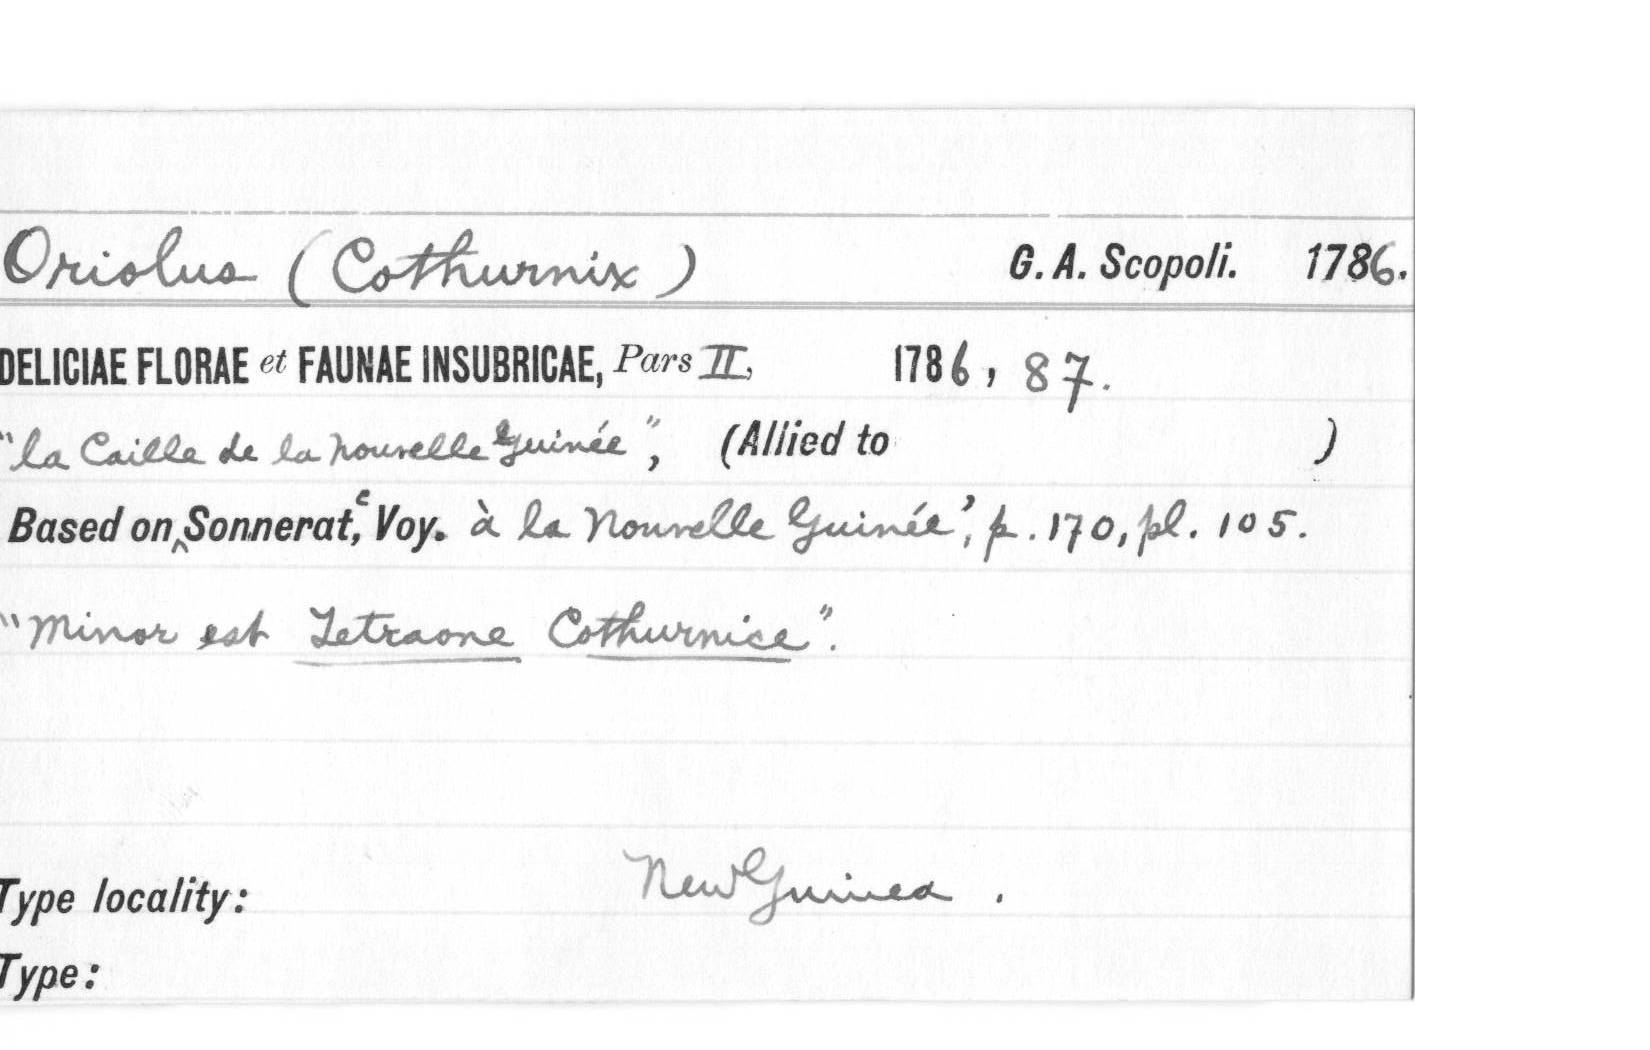 Oriolus (Cothurnix) G. A. Scopoli. 1786.
DELICIAE FLORAE et FAUNAE INSUBRICAE, Pars II, 1786, 87.
"la Caille de la nouvelle Guinée", (Allied to )
Based on Sonnerat, ‘Voy. à la Nouvelle Guinée’, p. 170, pl. 105.
"Minor est Tetraone Cothurnice".
Type locality: New Guinea.
Type: